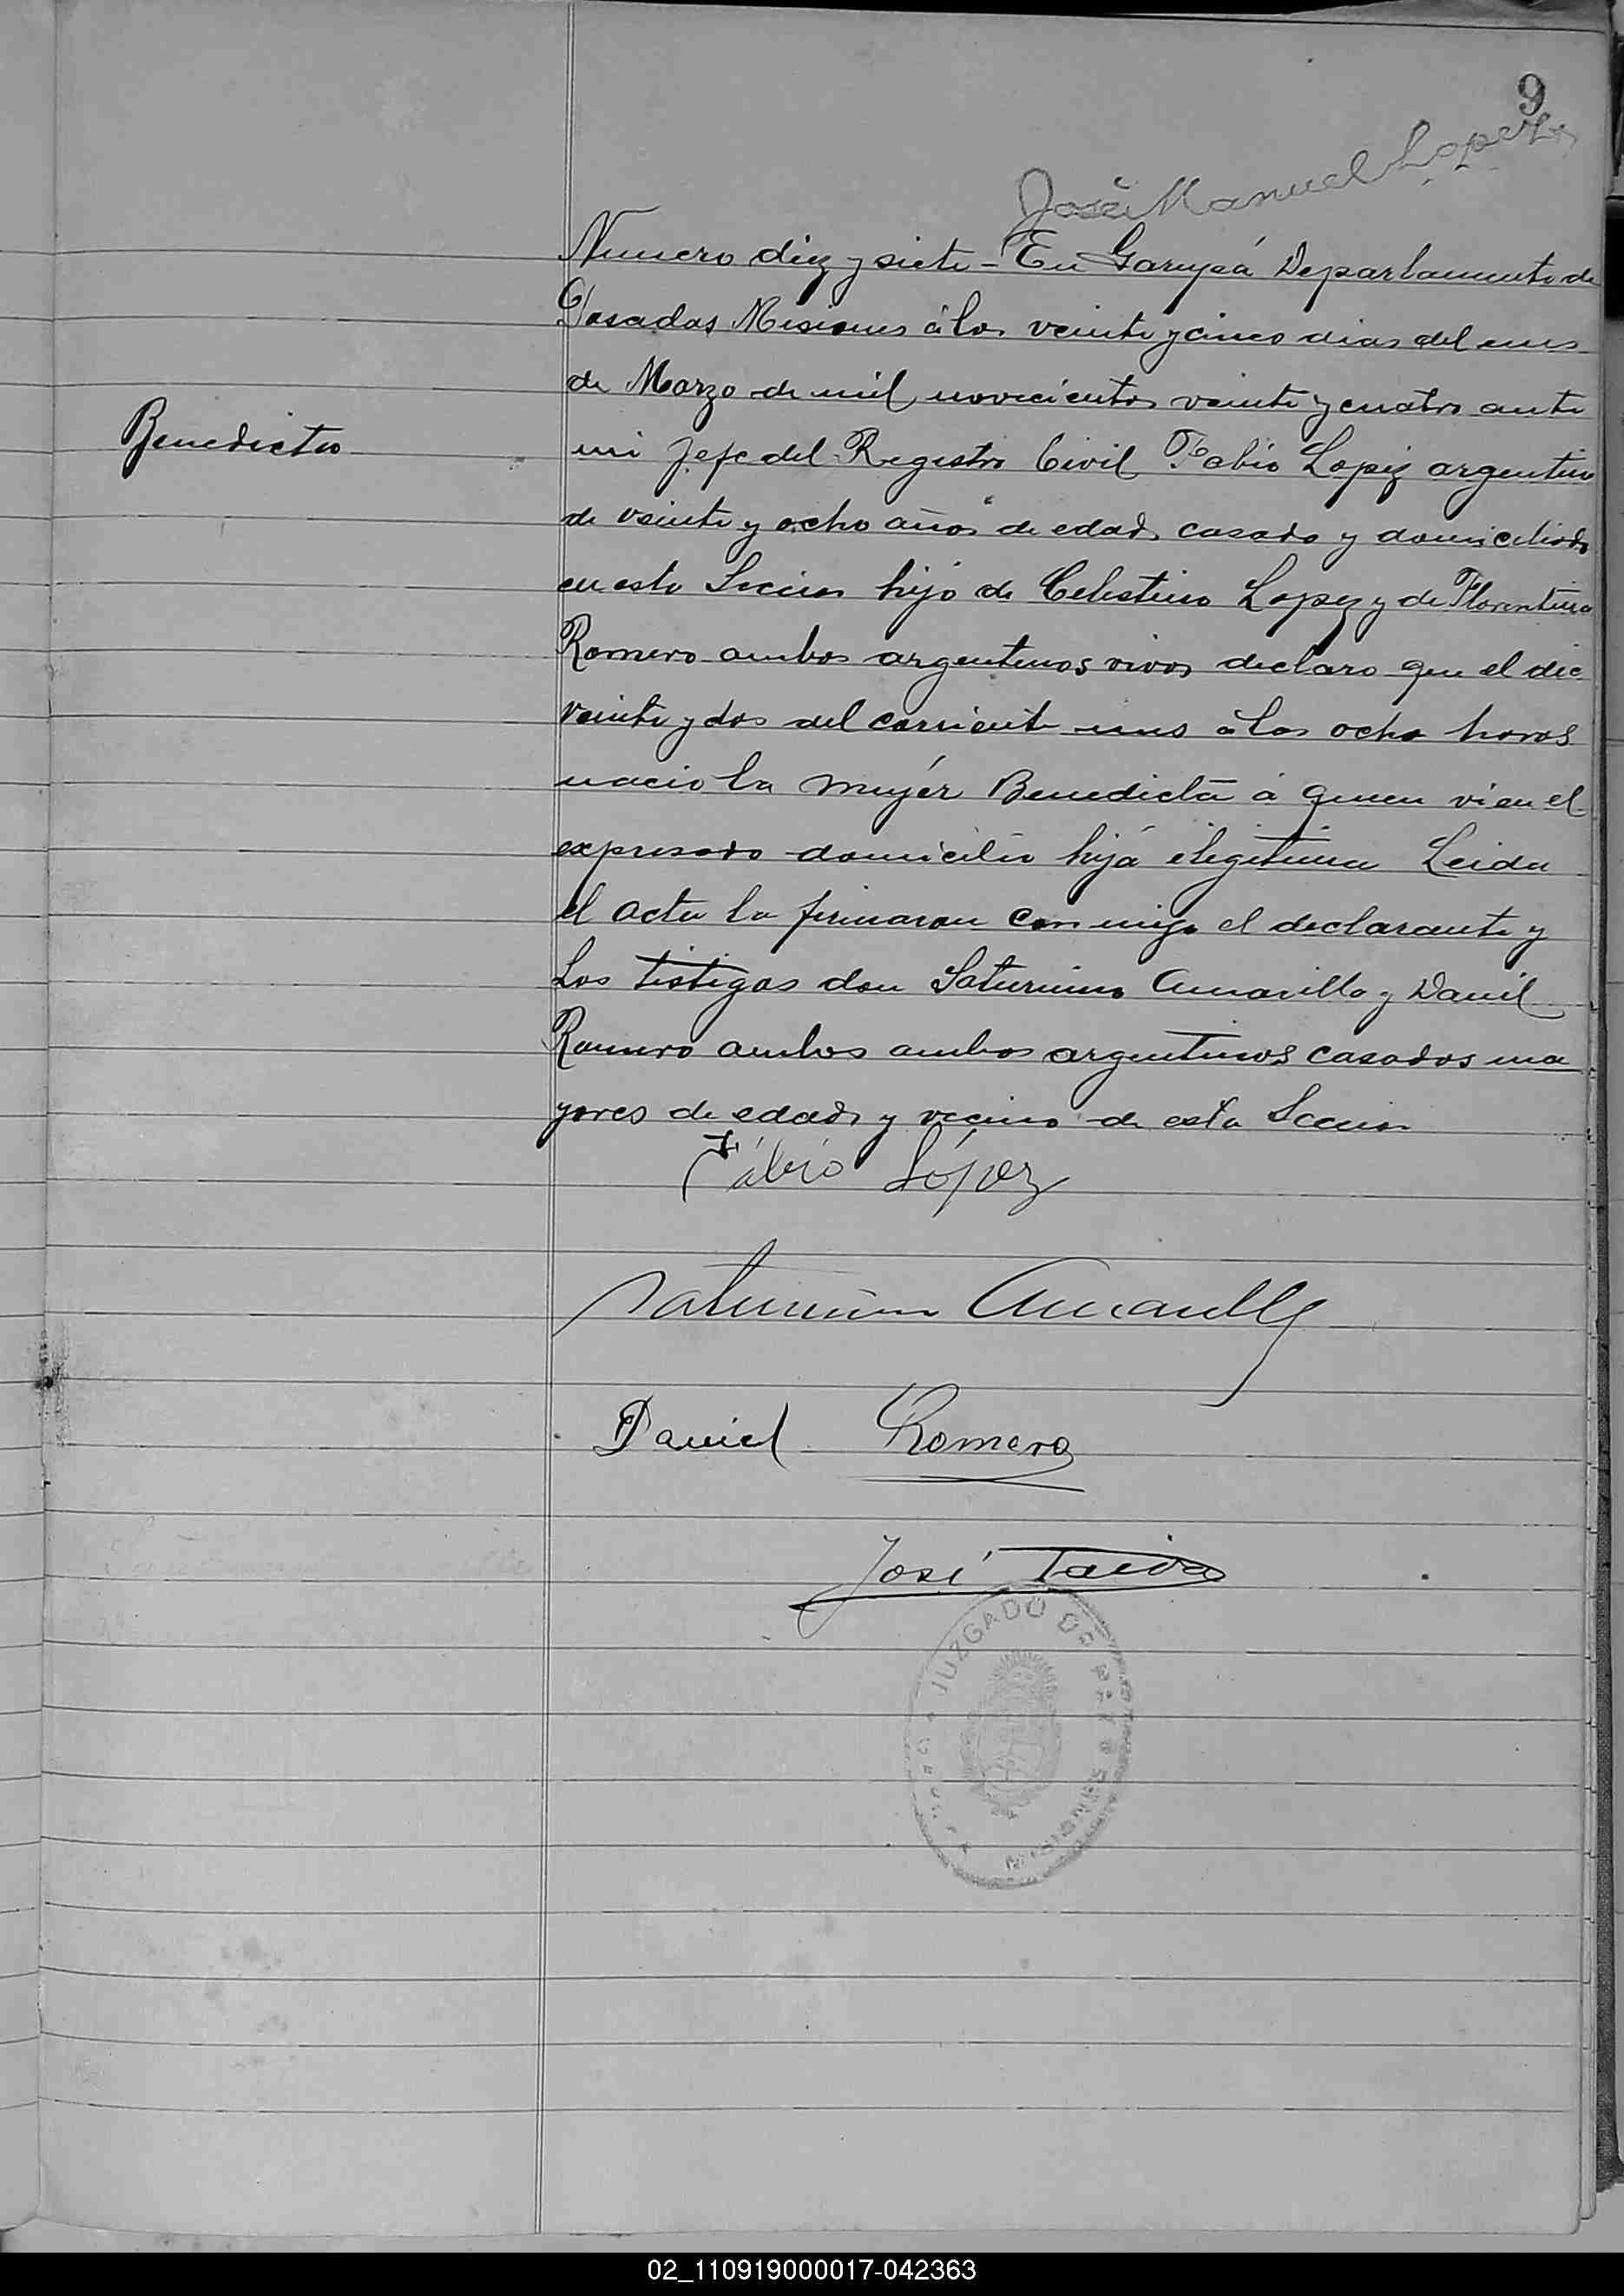 9
José Manuel Lopez
Numero diez y siete - En Garupá Departamento de
Posadas Misiones á los veinte y cinco dias del mes
de Marzo de mil novecientos veinte y cuatro ante
Benedicta
mi Jefe del Registro Civil Fabio Lopez argentino
de veinte y ocho años de edad casado y domiciliado
en esta Seccion hijo de Celestino Lopez y de Florentina
Romero ambos argentinos vivos declaro que el dia
veinte y dos del corriente mes á las ocho horas
nacio la mujér Benedicta á quien vi en el
expresado domicilio hijá ilegitima Leida
el acta la firmaron con migo el declarante y
Los testigos don Saturnino Amarilla y Daniel
Romero ambos ambos argentinos casados ma
yores de edad y vecino de esta Seccion
Fábio López
Saturnino Amarilla
Daniel Romero
José
JUZGADO DE PAZ
02_110919000017-042363